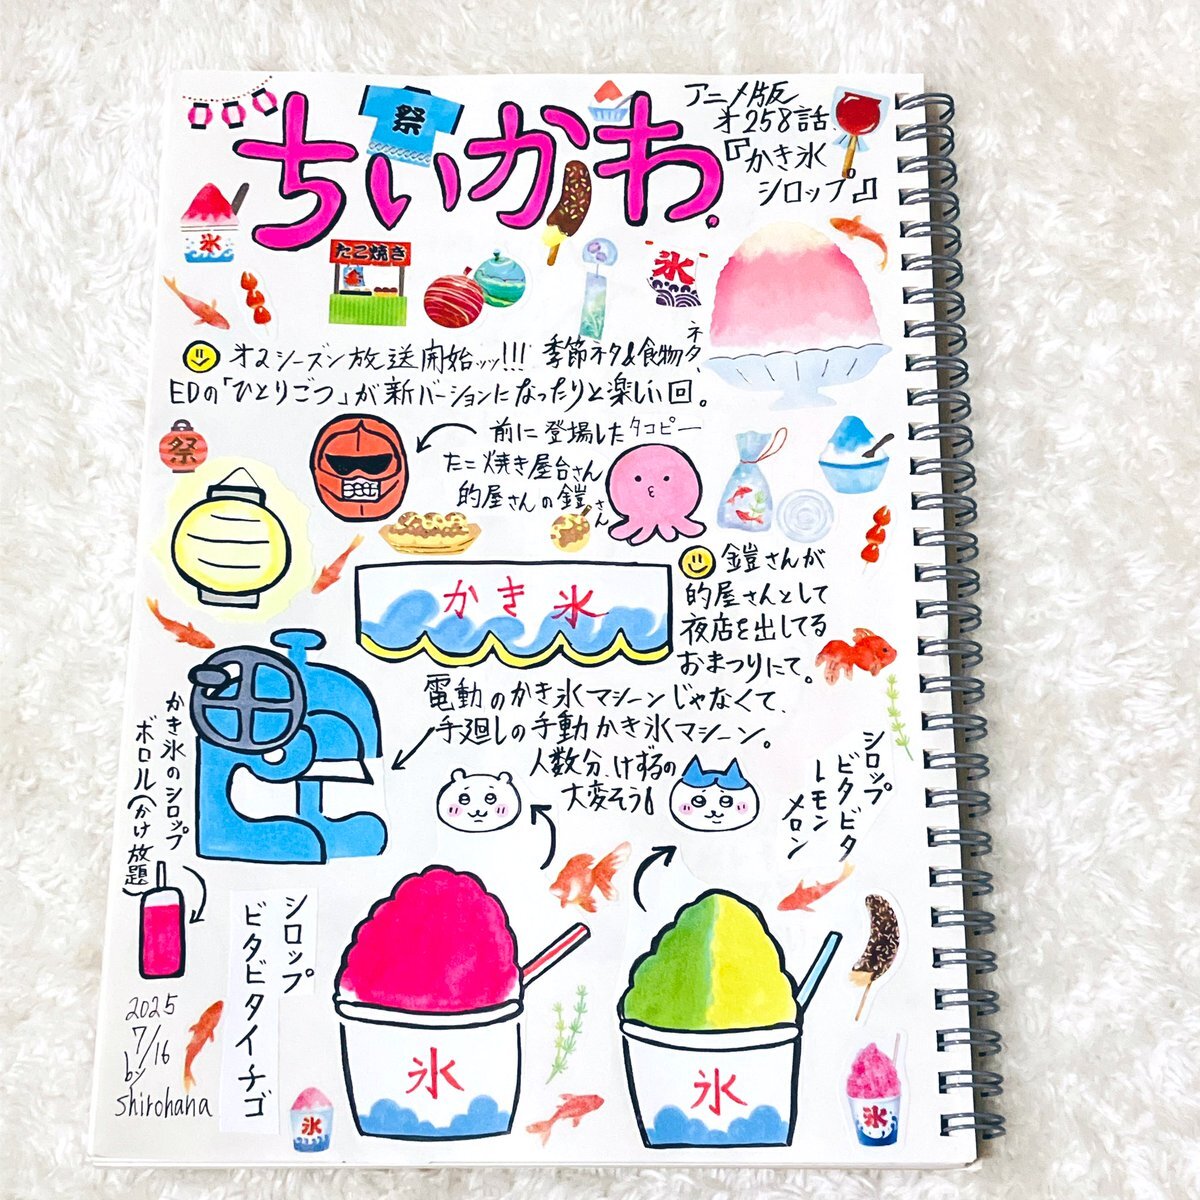 ちいかわ
祭
アニメ版
オ258話
『かき氷
シロップ』
氷
たこ焼き
氷
オ2シーズン放送開始ッッ!!! 季節ネタ&食物ネタ、
EDの「ひとりごつ」が新バージョンになったりと楽しい回。
祭
前に登場したタコピー
たこ焼き屋台さん
的屋さんの鎧さん
かき氷
鎧さんが
的屋さんとして
夜店を出してる
おまつりにて。
電動のかき氷マシーンじゃなくて、
手廻しの手動かき氷マシーン。
人数分、けずるの
大変そう
かき氷のシロップ
ボロル(かけ放題
シロップ
ビタビタ
レモン
メロン
シロップ
ビタビタイチゴ
氷
氷
2025
7/16
by
shirohana
氷
氷